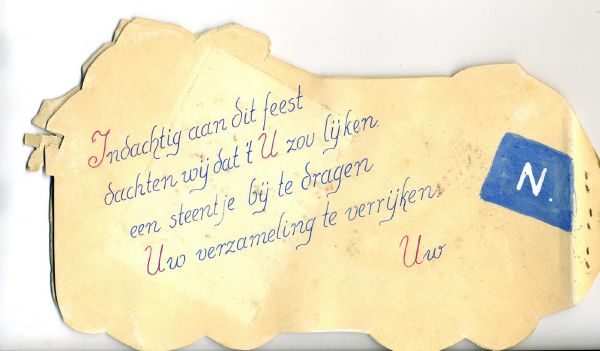 Indachtig aan dit feest
dachten wij dat 't U zou lijken.
een steentje bij te dragen
Uw verzameling te verrijken.
Uw
N.